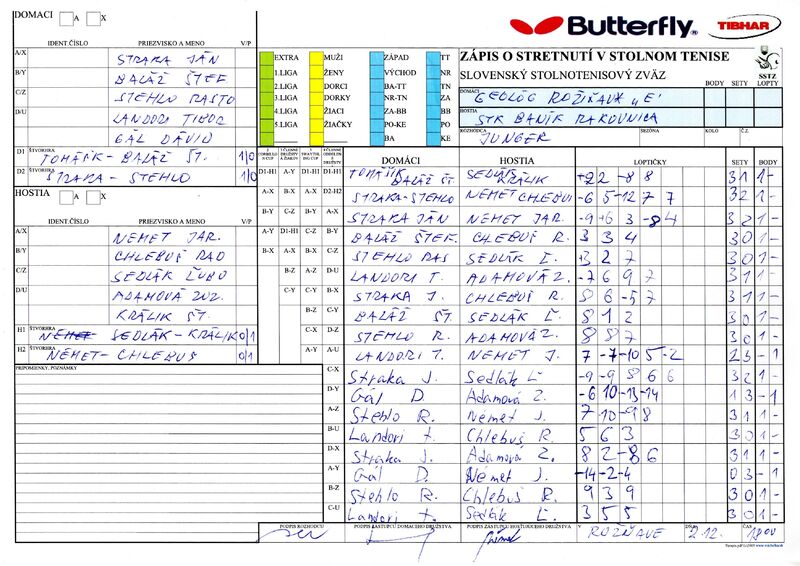 DOMACI A X
Butterfly
TIBHAR
IDENT.ČÍSLO PRIEZVISKO A MENO V/P
ZÁPIS O STRETNUTÍ V STOLNOM TENISE
SLOVENSKÝ STOLNOTENISOVÝ ZVÄZ
BODY SETY LOPTY
SSTZ
A/X STRAKA JÁN
B/Y BALÁŽ ŠTEF
C/Z STEHLO RASTO
D/U LANDORI TIBOR
GÁL DÁVID
EXTRA MUŽI ZÁPAD TT
1.LIGA ŽENY VÝCHOD NR
2.LIGA DORCI BA-TT TN
3.LIGA DORKY NR-TN ZA
4.LIGA ŽIACI ZA-BB BB
5.LIGA ŽIAČKY PO-KE PO
BA KE
DOMÁCI GEOLÓG ROŽŇAVA „E"
HOSTIA STK BANÍK RAKOVNICA
ROZHODCA JUNGER SEZÓNA KOLO Č.Z.
D1 ŠTVORHRA TOMÁŠIK - BALÁŽ Š. 1/0
D2 STRAKA - STEHLO 1/0
HOSTIA A X
IDENT.ČÍSLO PRIEZVISKO A MENO V/P
A/X NEMET JAR.
B/Y CHLEBUŠ RAD
C/Z SEDLÁK ĽUBO
D/U ADAMOVÁ ZUZ.
KRÁLIK ŠT.
H1 ŠTVORHRA SEDLÁK - KRÁLIK 0/1
H2 ŠTVORHRA NÉMET - CHLEBUŠ 0/1
PRIPOMIENKY, POZNÁMKY
DOMÁCI HOSTIA LOPTIČKY SETY BODY
D1-H1 A-Y D1-H1 D1-H1 TOMÁŠIK BALÁŽ Š. SEDLÁK KRÁLIK 2 -8 8 3 1 1 -
A-X B-X B-X D2-H2 STRAKA-STEHLO NEMET CHLEBUŠ -6 5 -12 7 7 3 2 1 -
B-Y C-Z B-Y A-X STRAKA JÁN NEMET JAR. -9 6 3 -8 4 3 2 1 -
A-Y D1-H1 C-Z B-Y BALÁŽ ŠTEF. CHLEBUŠ R. 3 3 4 3 0 1 -
B-X A-X B-X C-Z STEHLO RAS SEDLÁK Ľ. 3 2 7 3 0 1 -
B-Z A-Z D-U LANDORI T. ADAMOVÁ Z. -7 6 9 7 3 1 1 -
C-Y C-Y B-X STRAKA J. CHLEBUŠ R. 8 6 -5 7 3 1 1 -
B-Z C-Y BALÁŽ Š. SEDLÁK Ľ. 8 1 2 3 0 1 -
C-X D-Z STEHLO R. ADAMOVÁ Z. 8 8 7 3 0 1 -
A-Y A-U LANDORI T. NEMET J. 7 -7 -10 5 -2 2 3 - 1
C-X Straka J. Sedlák Ľ -9 -9 8 6 6 3 2 1 -
D-Y Gál D. Adamová Z. -6 10 -13 -14 1 3 - 1
A-Z Stehlo R. Német J. 7 10 -9 8 3 1 1 -
B-U Landori t. Chlebuš R. 5 6 3 3 0 1 -
D-X Straka J. Adamová Z. 8 2 -8 6 3 1 1 -
A-Y Gál D. Német J. -14 -2 -4 0 3 - 1
B-Z Stehlo R. Chlebuš R. 9 3 9 3 0 1 -
C-U Landori t. Sedlák Ľ. 3 5 5 3 0 1 -
PODPIS ROZHODCU PODPIS ZÁSTUPCU DOMÁCEHO DRUŽSTVA PODPIS ZÁSTUPCU HOSŤUJÚCEHO DRUŽSTVA V ROŽŇAVE DŇA 2.12. 18 00